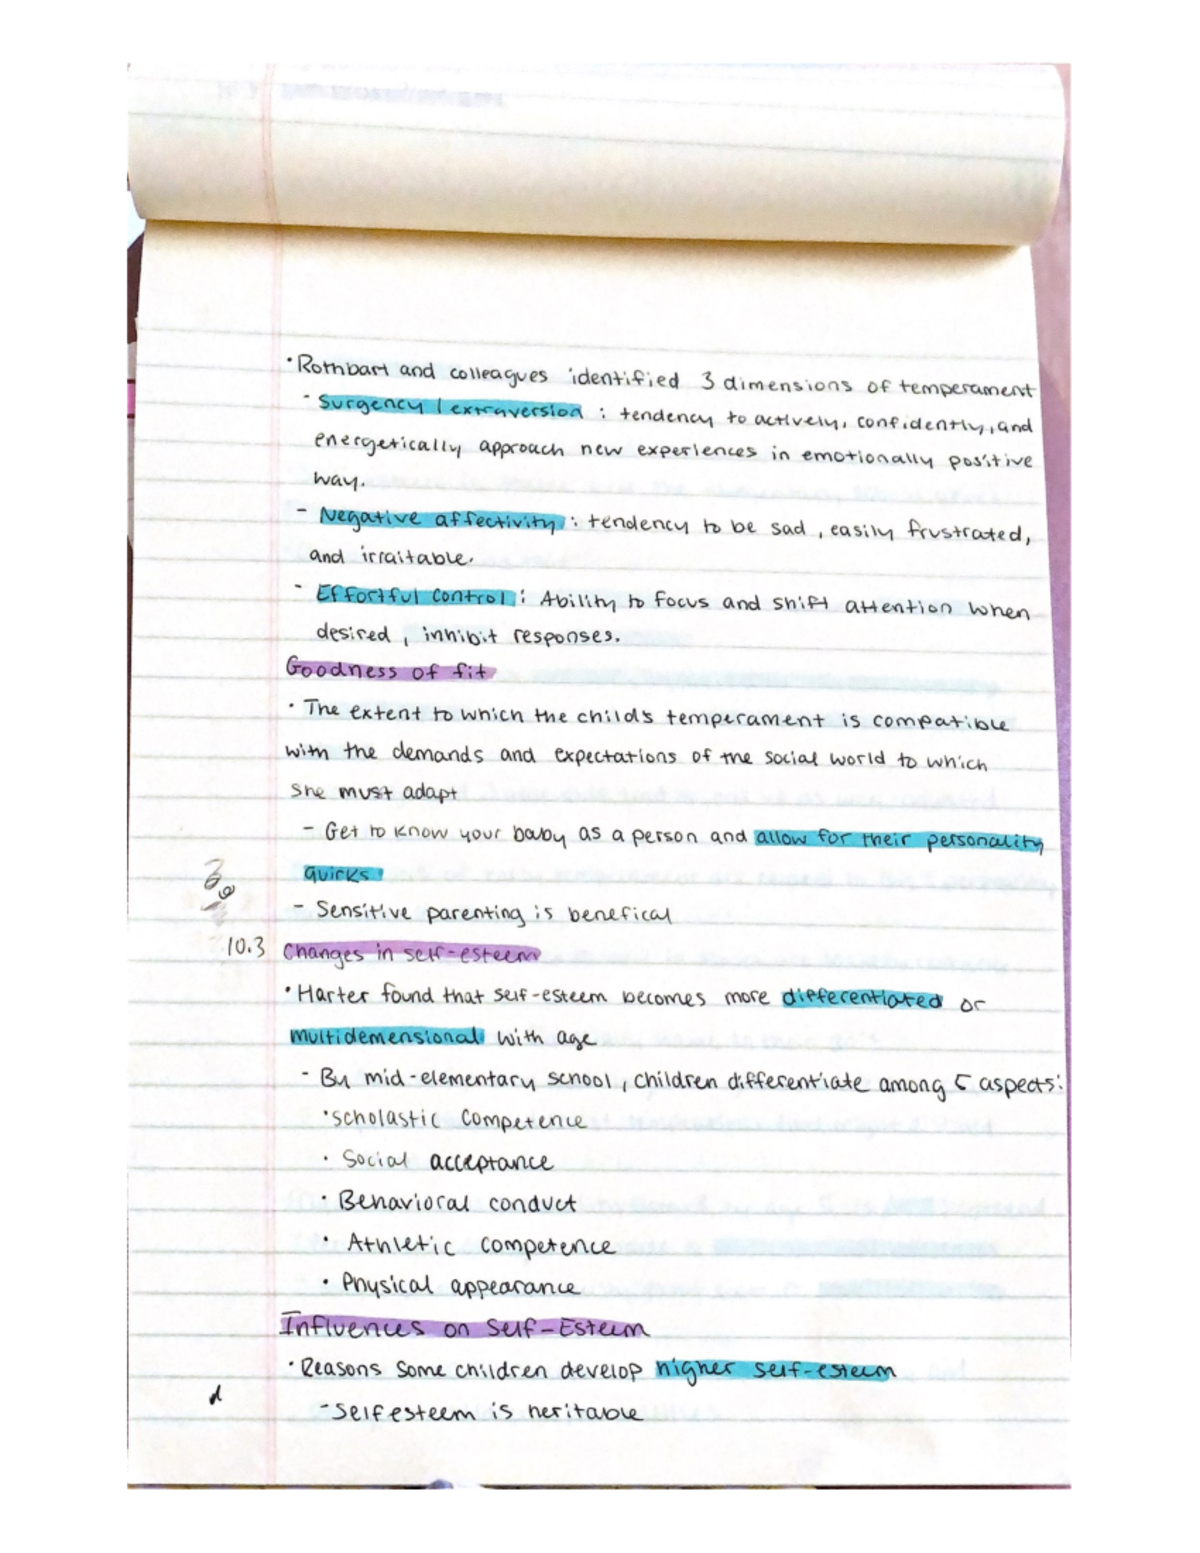 • Rothbart and colleagues identified 3 dimensions of temperament
- Surgency / extraversion : tendency to actively, confidently, and
energetically approach new experiences in emotionally positive
way.
- Negative affectivity : tendency to be sad, easily frustrated,
and irraitable.
- Effortful control : Ability to focus and shift attention when
desired, inhibit responses.
Goodness of fit
• The extent to which the child's temperament is compatible
with the demands and expectations of the social world to which
she must adapt
- Get to know your baby as a person and allow for their personality
quirks
- Sensitive parenting is benefical
10.3 Changes in self-esteem
• Harter found that self-esteem becomes more differentiated or
multidemensional with age
- By mid-elementary school, children differentiate among 5 aspects:
• scholastic competence
• Social acceptance
• Behavioral conduct
• Athletic competence
• Physical appearance
Influences on Self-Esteem
• Reasons some children develop higher self-esteem
d
- Self esteem is heritable